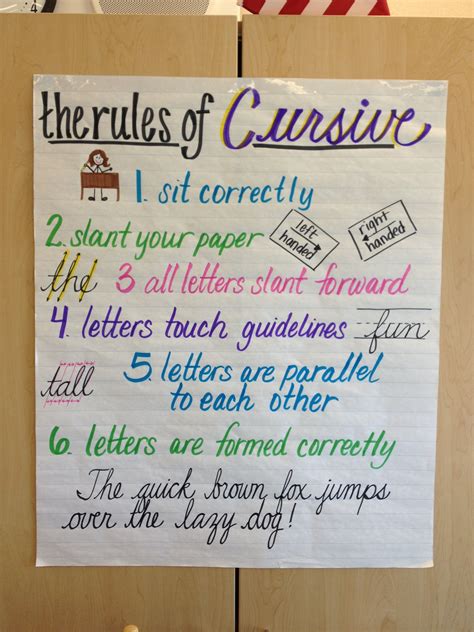 the rules of Cursive
1. sit correctly
2. slant your paper
left handed
right handed
the
3 all letters slant forward
4. letters touch guidelines
fun
5. letters are parallel
to each other
tall
6. letters are formed correctly
The quick brown fox jumps
over the lazy dog!